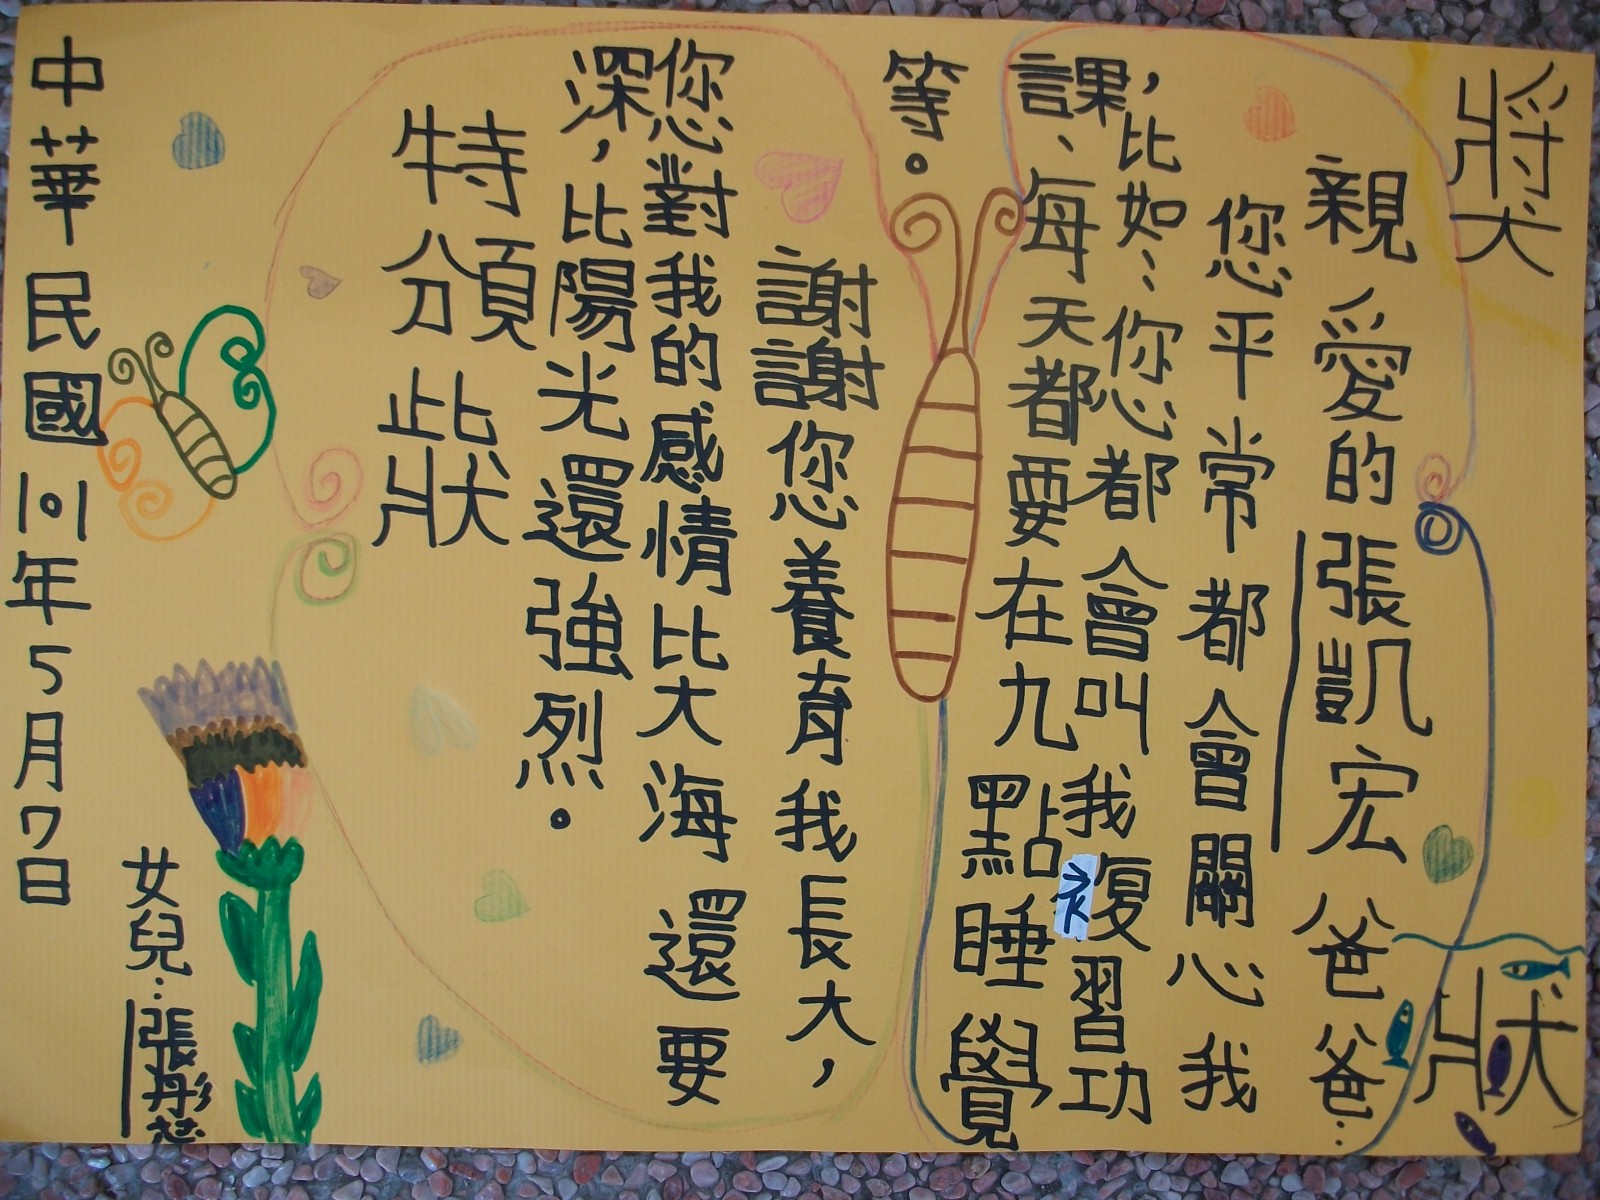 獎狀
親愛的張凱宏爸爸：
您平常都會關心我
，比如：您都會叫我複習功
課、每天都要在九點睡覺
等。
謝謝您養育我長大，
您對我的感情比大海還要
深，比陽光還強烈。
特頒此狀
女兒：張彤
中華民國101年5月7日